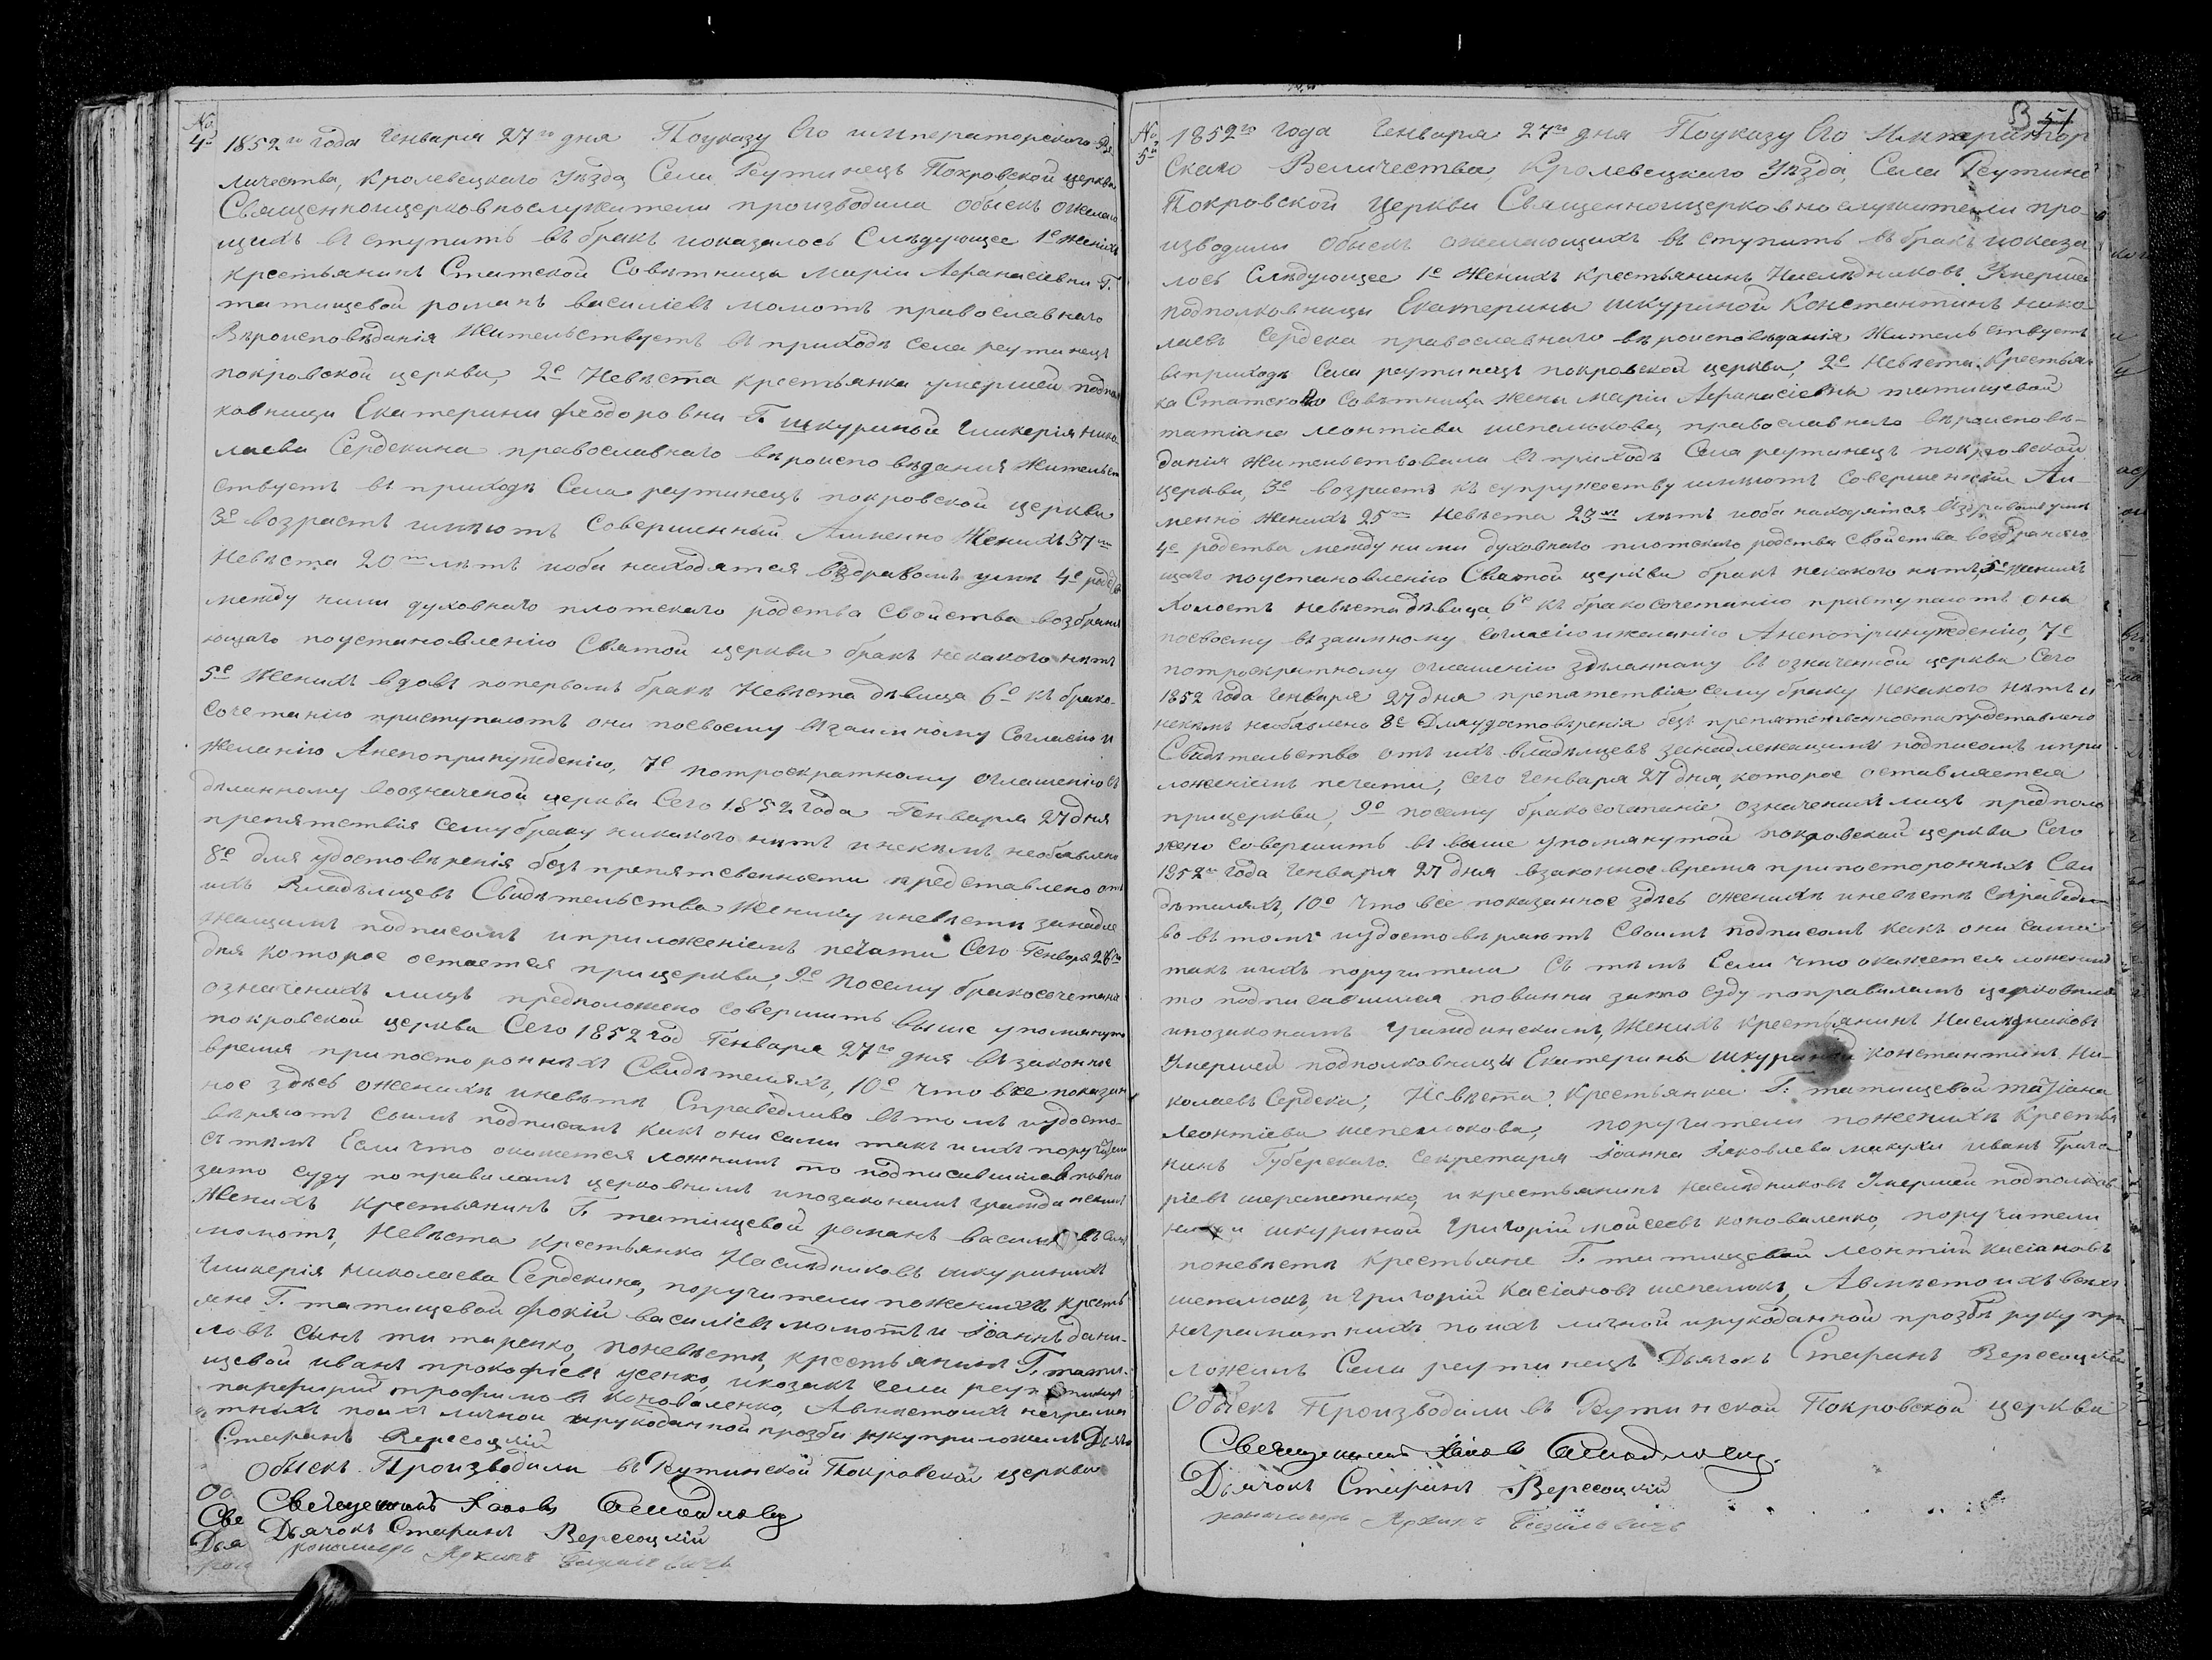 №
4й 1852го года Генваря 27го дня Поуказу Его императорского Ве
личества, Кролевецкаго Уѣзда, Села Реутинецъ Покровской церкви
Священноицерковнослужители производили обыскъ ожелаю
щихъ въступить въбракъ ипоказалось Слѣдующее 1е Женихъ
крестьянинъ Статской Совѣтницы Маріи Афанасіевни Г.
татищевой романъ василіевъ момотъ православнаго
Вѣроисповѣданія Жительствуетъ въприходѣ села реутинецъ
покровской церкви, 2е Невѣста крестьянка умершей подпол
ковници Екатерини Феодоровни Г. шкуриной Гликерія нико
лаева Сердекина православнаго вѣроисповѣданія Жительст
ствуетъ въприходѣ Села реутинецъ покровской церкви
3е возрастъ имѣютъ Совершенный Аименно Женихъ 37мъ
Невѣста 20ть лѣтъ иоба находятся вздравомъ умѣ 4е родства
между ними духовнаго плотскаго родства Свойства возбраня
ющаго поустановленію Святой церкви бракъ некакого нѣтъ
5е Женихъ вдовъ попервомъ бракѣ Невѣста дѣвица 6е къ брако-
сочетанію приступаютъ они посвоему взаимному Согласію и
Желанію Анепопринужденію, 7е потроекратному оглашенію въ
дѣланному воозначеной церкви Сего 1852 года Генваря 27 дня
препятствія сему браку никакого нѣтъ инекѣмъ необявлено
8е для удостовѣренія безъ препятсвенности представлено отъ
ихъ Владѣлцевъ Свидѣтельства Жениху иневѣсти занадле
жащимъ подписомъ иприложеніемъ печати Сего Генваря 26го
дня которое остается прицеркви, 9е Посему бракосочетаніе
означенихъ лицъ предположено совершить выше упомянуто
покровской церкви Сего 1852 год Генваря 27го дня въ законное
время припостороннихъ Свидѣтеляхъ, 10е Что все показан
ное здѣсь оженихѣ иневѣстѣ Справедливо въ томъ иудосто-
вѣряютъ своимъ подписомъ Какъ они сами такъ иихъ поручители
съ тѣмъ Если что окажется ложнимъ то подписавшіеся повини
зато суду поправиламъ церковнимъ ипозаконамъ гражданскимъ
Женихъ крестьянинъ Г. татищевой романъ василіевъ синъ
момотъ, Невѣста крестьянка Наслѣдниковъ шкуринихъ
Гликерія николаева Сердекина, поручители поженихѣ кресть
яне Г. татищевой фокій василіевъ момотъ и Іоаннъ дани-
ловъ сынъ титаренко, поневѣсти, крестьянинъ Г. тати-
щевой иванъ прокофіевъ усенко, икозакъ села реутинецъ
парфирій трофимовъ коноваленко, Авмѣстоихъ неграмо
тныхъ поихъ личной ирукоданной прозби руку приложилъ Дьячо
Стефанъ Вересоцкій
Обыскъ Производили въ Рутинской Покровской церкви
Священникъ Іаковъ
Дьячокъ Стефанъ Вересоцкій
пономарь Архипъ
№
5й
1852го года Генваря 27го дня Поуказу Его Император
Скаго Величества, Кролевецкаго Уѣзда, Села Реутинец
Покровской Церкви Священноицерковнослужители про-
изводили Обыскъ ожелающихъ въступить въбракъ ипоказа
лось Слѣдующее 1е Женихъ крестьянинъ Наслѣдниковъ Умершей
подполковници Екатерины шкуриной Константинъ нико
лаевъ Сердека православнаго вѣроисповѣданія Жительствуетъ
въприходѣ Села реутинецъ покровской церкви, 2е Невѣста Крестьян
ка Статского Совѣтника жены Маріи Афанасіевны татищевой
татіана леонтіева шепелюкова, православнаго вѣроисповѣ-
данія Жительствовала въприходѣ Села реутинецъ покровской
церкви, 3е возрастъ къ супружеству имѣютъ Совершенний Аи-
менно Женихъ 25ть Невѣста 23хъ лѣтъ иоба находятся вздравомъ умѣ
4е родства между ними духовнаго плотскаго родства Свойства возбраняю
щаго поустановленію Святой церкви бракъ некакого нѣтъ, 5е Женихъ
Холостъ невѣста дѣвица, 6е къ бракосочетанію приступаютъ они
посвоему взаимному согласію ижеланію Анепопринужденію, 7е
потроекратному оглашенію здѣланному въ означенной церкви Сего
1852 года Генваря 27 дня препятствія сему браку некакого нѣтъ и
некѣмъ необявлено 8е Дляудостовѣренія безъ препятственности представлено
Свидѣтельство отъ ихъ владѣлцевъ занадлежащимъ подписомъ ипри
ложеніемъ печати, сего Генваря 27 дня, которое оставляется
прицеркви, 9е посему бракосочетаніе означенихъ лицъ предполо
жено совершить въ выше упомянутой покровской церкви Сего
1852го года Генваря 27 дня взаконное время припостороннихъ Сви
дѣтеляхъ, 10е Что все показанное здѣсь оженихѣ иневѣстѣ Справедли
во въ томъ иудостовѣряютъ Своимъ подписомъ какъ они самиі
такъ иихъ поручители Съ тѣмъ Если что окажется ложнимъ
то подписавшіися повинни зато суду поправиламъ церковнимъ
ипозаконамъ гражданскимъ, Женихъ Крестьянинъ Наслѣдниковъ
Умершей подполковницы Екатерины шкуриной константинъ Ни-
колаевъ Сердека, Невѣста Крестьянка Г. татищевой татіана
Леонтіева шепелюкова, поручители поженихѣ Крестья
нинъ Губерскаго Секретаря іоанна іяковлева макухи иванъ Григо
ріевъ шереметенко, и крестьянинъ наслѣдниковъ Умершей подполков
ници шкуриной григорій мойсеевъ коноваленко, поручители
поневѣсти крестьяне Г. татищевой леонтій касіановъ
шепелюкъ, и григорій касіановъ шепелюкъ, Авмѣсто ихъ всехъ
неграматнихъ поихъ личной ирукоданной прозбѣ руку при
ложилъ Села реутинецъ Дьячокъ Стефанъ Вересоцкій
Обыскъ Производили въ Рутинской Покровской церкви
Священникъ Іаковъ
Дьячокъ Стефанъ Вересоцкій
пономарь Архипъ